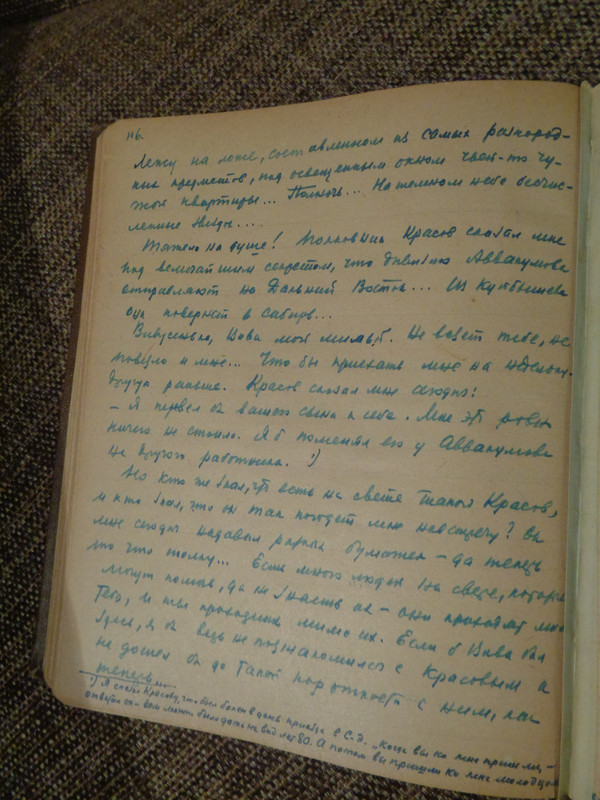 116.
Лежу на ложе, составленном из самых разнород-
ных предметов, под освещенным окном чьей-то чу-
жой квартиры... Полночь... На темном небе бесчис-
ленные звезды...
Тяжело на душе! Полковник Красов сказал мне
под величайшим секретом, что дивизию Аввакумова
отправляют на Дальний Восток... Из Куйбышева
она повернет в Сибирь...
Вивусенька, Вива моя милый. Не везет тебе, не
повезло и мне... Что бы приехать мне на недельку-
другую раньше. Красов сказал мне сегодня:
– Я перевел бы вашего сына к себе. Мне это ровно
ничего не стоило. Я б поменял его у Аввакумова
на другого работника. ¹)
Но кто же знал, что есть на свете такой Красов,
и кто знал, что он так пойдет мне навстречу? Он
мне сегодня надавал разных бумажек – да теперь
то что толку... Есть много людей на свете, которые
могут помочь, да не знаешь их – они проходят мимо
тебя, и ты проходишь мимо их. Если б Вива был
здесь, я бы ведь не познакомился с Красовым и
не дошел бы до такой короткости с ним, как
теперь...
¹) Я сказал Красову, что был болен в день приезда в С.Д. „Когда вы ко мне пришли, –
ответил он – вам можно было дать на вид лет 80. А потом вы пришли ко мне молодцом